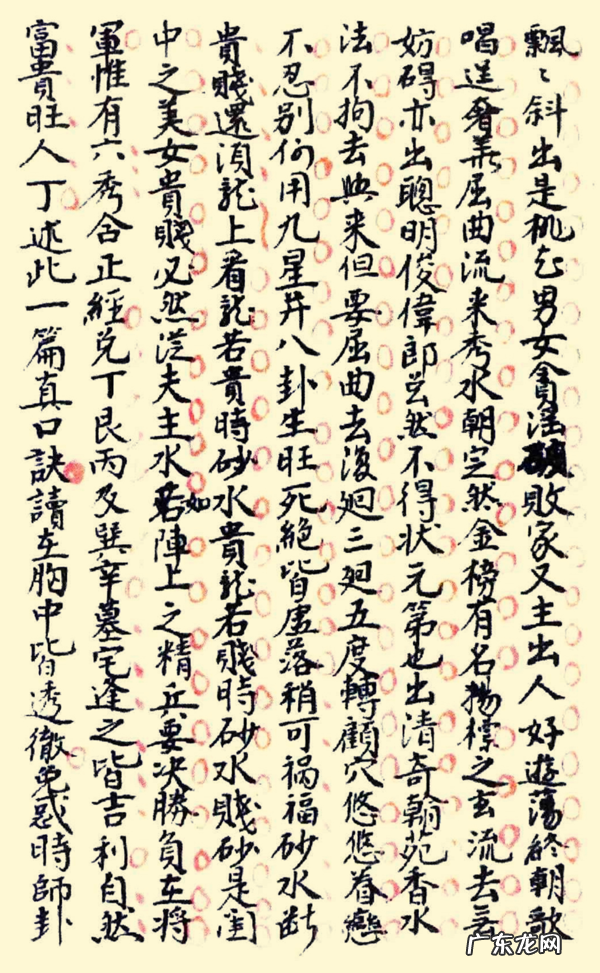 飄〻斜出是桃花男女貪淫敗家又主出人好遊蕩終朝歌
唱逞奢華屈曲流來秀水朝定然金榜有名揚標之玄流去無
妨碍亦出聰明俊偉郎总然不得狀元第也出清奇翰苑香水
法不拘去與來但要屈曲去復廻三廻五度轉顧穴悠悠眷戀
不忍別何用九星并八卦生旺死絕皆虛落稍可禍福砂水断
貴賤還須龍上看龍若貴時砂水貴龍若賤時砂水賤砂是闺
中之美女貴賤必然從夫主水如陣上之精兵要决勝負在將
軍惟有六秀合正經兑丁艮丙及巽辛墓宅逢之皆吉利自然
富貴旺人丁述此一篇真口訣讀在胸中皆透徹免惑時師卦
广东龙网